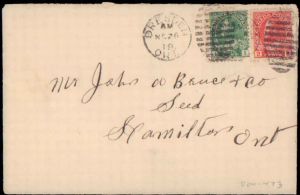 DRESDEN
AM
NO 26
18
ONT.
Mr John A Bruce & Co
Seed
Hamilton
Ont